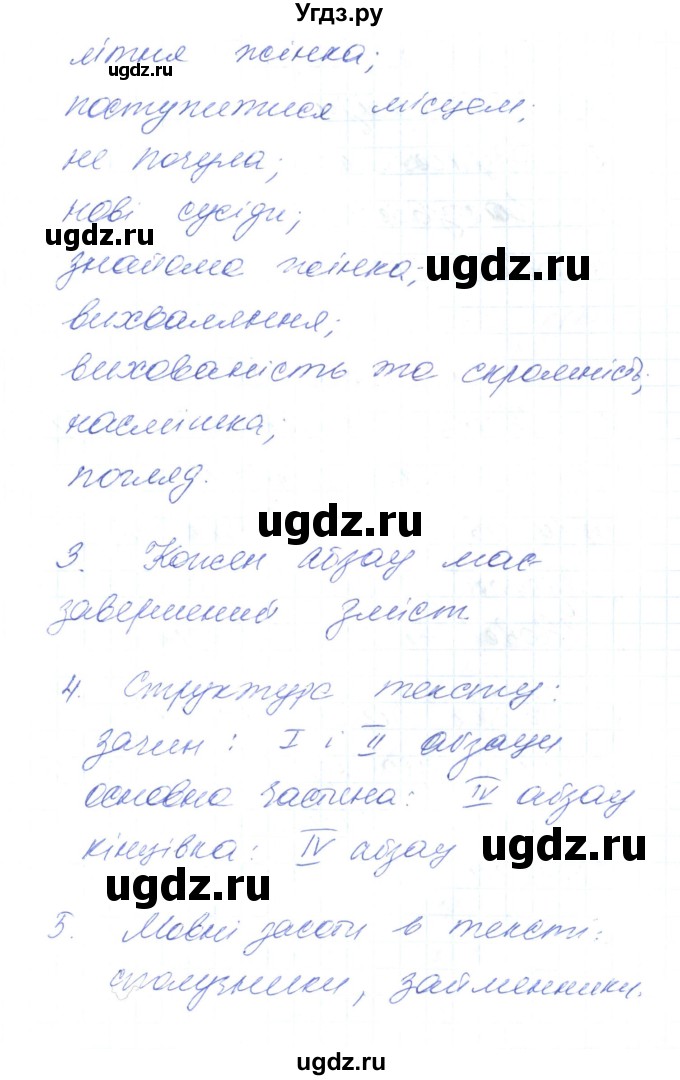 Угдз.ру
літня жінка;
ugdz.ru
поступитися місцем;
не почула;
нові сусіди;
ugdz.ru
знайома жінка;
ugdz.ru
вихваляння;
вихованість та скромність;
насмішка;
погляд.
ugdz.ru
3. Кожен абзац має
завершений зміст.
ugdz.ru
4. Структура тексту:
зачин: I і II абзаци
основна частина: IV абзац
кінцівка: IV абзац
ugdz.ru
ugdz.ru
5. Мовні засоби в тексті:
сполучники, займенники.
ugdz.ru